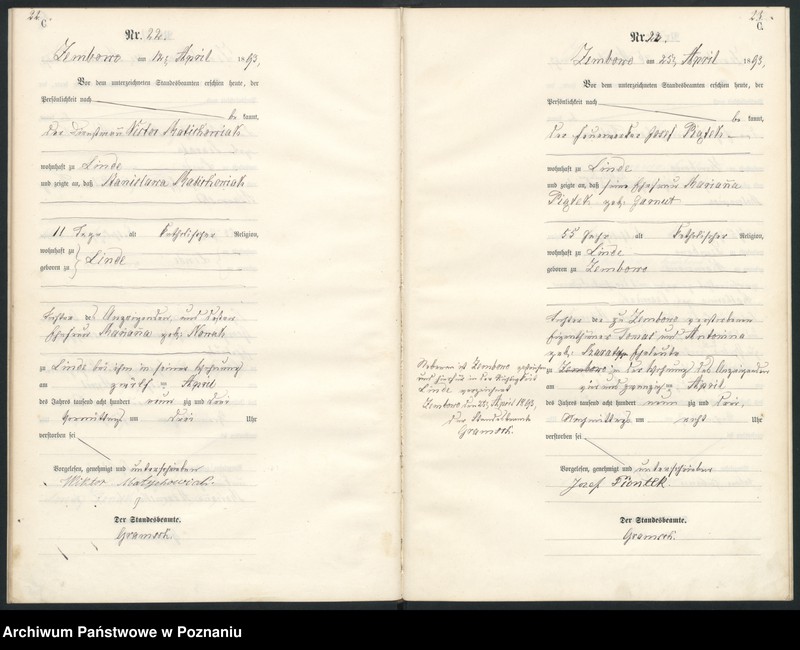 22.
C.
Nr. 22.
Zembowo am 12, April 1893,
Vor dem unterzeichneten Standesbeamten erschien heute, der
Persönlichkeit nach
be kannt,
Der Dienstmann Victor
wohnhaft zu Linde
und zeigte an, daß Stanislawa
11 Tage alt katholischer Religion,
wohnhaft zu
geboren zu Linde
Tochter des Anzeigenden, und dessen
Ehefrau Marianna geb. Nowak
zu Linde bei ihm in seiner Wohnung
am zwölften April
des Jahres tausend acht hundert neun zig und drei
Vormittags um drei Uhr
verstorben sei
Vorgelesen, genehmigt und unterschrieben
Wiktor
Der Standesbeamte.
C.
Nr. 22.
Zembowo am 25, April 1893,
Vor dem unterzeichneten Standesbeamten erschien heute, der
Persönlichkeit nach
be kannt,
der Josef Piątek
wohnhaft zu Linde
und zeigte an, daß seine Ehefrau Marianna
Piątek geb.
55 Jahr alt katholischer Religion,
wohnhaft zu Linde
geboren zu Zembowo
Tochter der zu Zembowo verstorbenen
Eigenthümer und
geb. Eheleute
zu Zembowo in der Wohnung des Anzeigenden
am vier und zwanzigsten April
des Jahres tausend acht hundert neun zig und drei,
Nachmittags um acht Uhr
verstorben sei
Vorgelesen, genehmigt und unterschrieben
Josef Piontek
Der Standesbeamte.
Nebenan ist Zembowo gestrichen
und hierfür in der Richtigkeit
Linde
Zembowo den 25, April 1893,
Der Standesbeamte
Archiwum Państwowe w Poznaniu